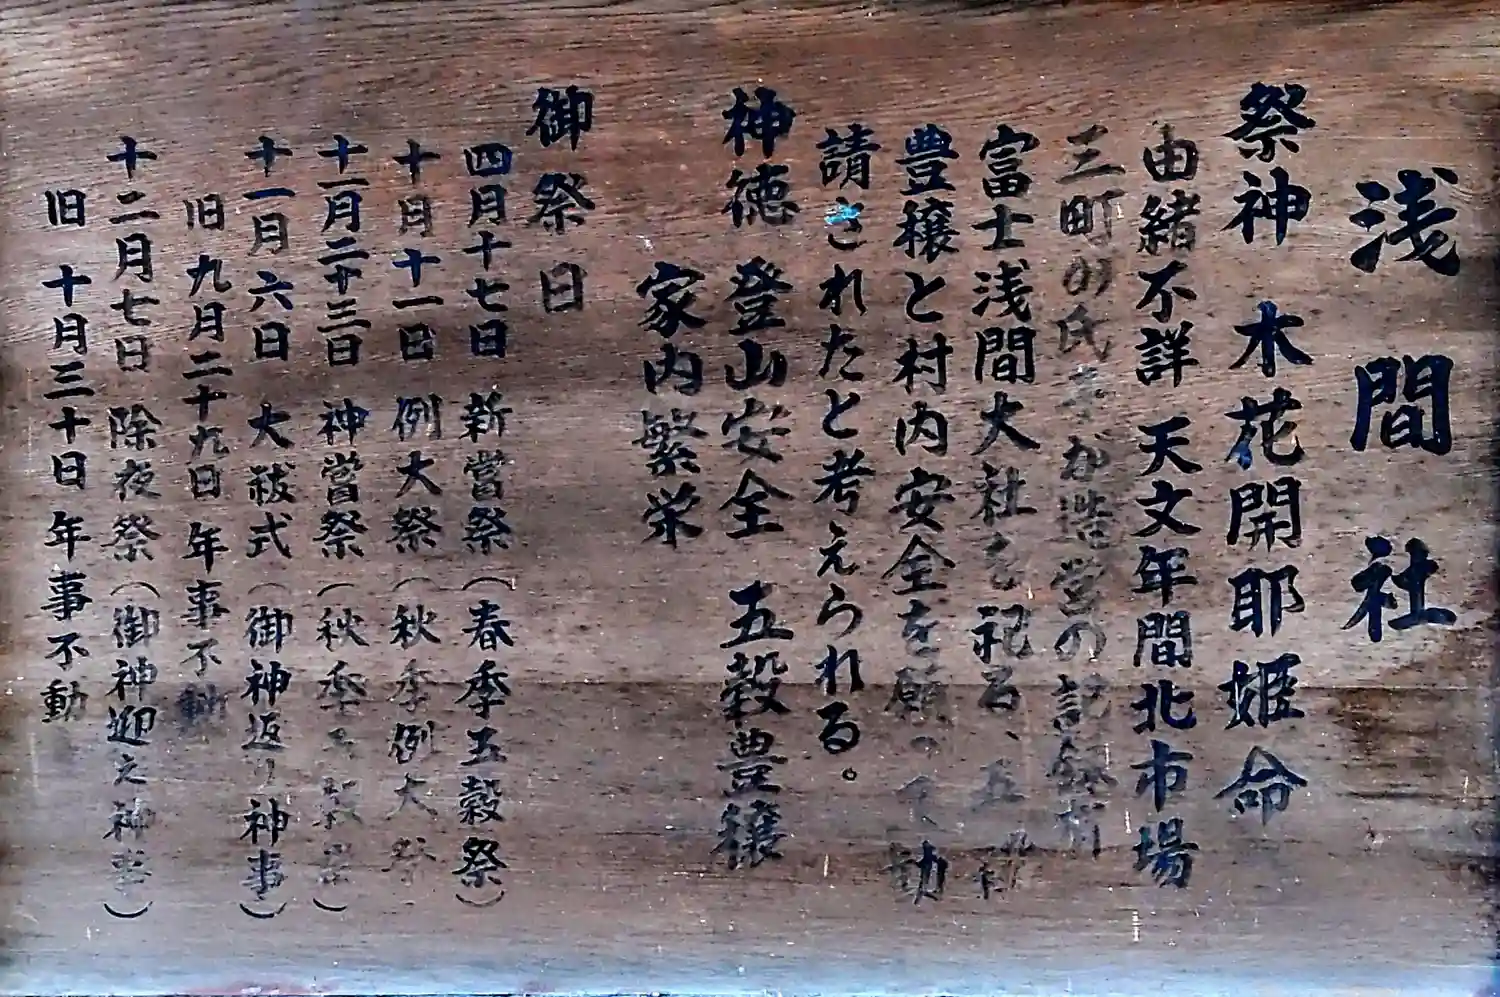 浅間社
祭神 木花開耶姫命
由緒不詳 天文年間北市場
三町の氏子が造営の記録有
富士浅間大社を祀る、五穀
豊穣と村内安全を願って勧
請されたと考えられる。
神徳 登山安全 五穀豊穣
家内繁栄
御祭日
四月十七日 新嘗祭(春季五穀祭)
十月十一日 例大祭(秋季例大祭
十一月二十三日 神嘗祭(秋季五穀祭)
十一月六日 大祓式(御神返り神事)
旧九月二十九日 年事不動
十二月七日 除夜祭(御神迎之神事)
旧 十月三十日 年事不動